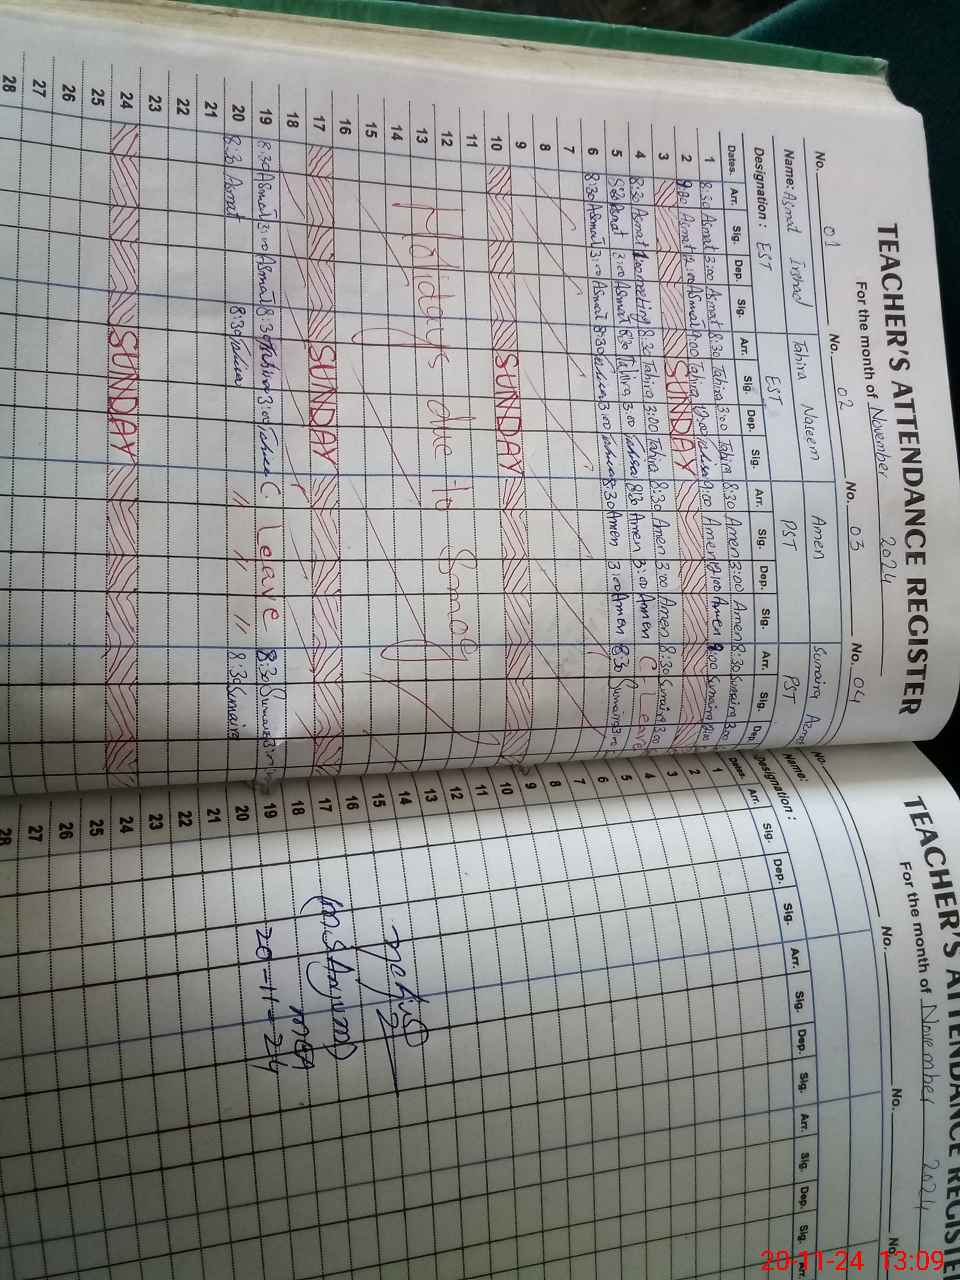 TEACHER'S ATTENDANCE REGISTER
For the month of November 2024
No. 01 No. 02 No. 03 No. 04
Name: Asmat Irshad Tahira Naleem Amen Sumaira
Designation: EST EST PST PST
Dates. Arr. Sig. Dep. Sig. Arr. Sig. Dep. Sig. Arr. Sig. Dep. Sig. Arr. Sig. Dep.
1 8:30 Asmat 3:00 Asmat 8:30 Tahira 3:00 Tahira 8:30 Amen 3:00 Amen 8:30 Sumaira 3:00
2 9:00 Asmat 12:00 Asmat 9:00 Tahira 12:00 Tahira 9:00 Amen 12:00 Amen 9:00 Sumaira
3 SUNDAY
4 8:30 Asmat meeting 8:30 Tahira 3:00 Tahira 8:30 Amen 3:00 Amen 8:30 Sumaira 3:00
5 8:30 Asmat 3:00 Asmat 8:30 Tahira 3:00 Tahira 8:30 Amen 3:00 Amen C. Leave
6 8:30 Asmat 3:00 Asmat 8:30 Tahira 3:00 Tahira 8:30 Amen 3:00 Amen 8:30 Sumaira
7
8
9
10 SUNDAY
11
12
13 Holidays due to Smog
14
15
16
17 SUNDAY
18
19 8:30 Asmat 3:00 Asmat 8:30 Tahira 3:00 Tahira C. Leave 8:30 Sumaira
20 8:30 Asmat 8:30 Tahira " " " 8:30 Sumaira
21
22
23
24 SUNDAY
25
26
27
28
TEACHER'S ATTENDANCE REGISTER
For the month of November 2024
No. No. No. No.
Name:
Designation:
Dates. Arr. Sig. Dep. Sig. Arr. Sig. Dep. Sig. Arr. Sig. Dep. Sig. Arr.
1
2
3
4
5
6
7
8
9
10
11
12
13
14
15
16
17
18
19
20
21
22
23
24
25
26
27
28
(M.S Anjum)
MEA
20-11-24
20-11-24 13:09